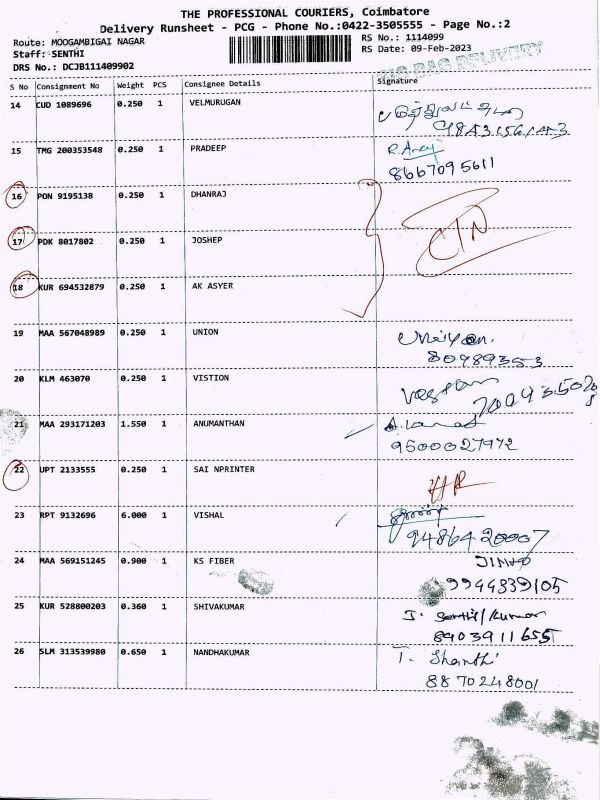 THE PROFESSIONAL COURIERS, Coimbatore
Delivery Runsheet - PCG - Phone No.:0422-3505555 - Page No.:2
Route: MOOGAMBIGAI NAGAR
Staff: SENTHI
DRS No.: DCJB111409902
RS No.: 1114099
RS Date: 09-Feb-2023
BIG BAG DELIVERY
S No Consignment No Weight PCS Consignee Details Signature
14 CUD 1089696 0.250 1 VELMURUGAN
15 TMG 200353548 0.250 1 PRADEEP
8667095611
16 PON 9195138 0.250 1 DHANRAJ
17 PDK 8017802 0.250 1 JOSHEP
18 KUR 694532879 0.250 1 AK ASYER
19 MAA 567048989 0.250 1 UNION
80989353
20 KLM 463070 0.250 1 VISTION
21 MAA 293171203 1.550 1 ANUMANTHAN
9500027972
22 UPT 2133555 0.250 1 SAI NPRINTER
23 RPT 9132696 6.000 1 VISHAL
9486420007
24 MAA 569151245 0.900 1 KS FIBER
9944339105
25 KUR 528800203 0.360 1 SHIVAKUMAR
J. Senthil kumar
8903911655
26 SLM 313539980 0.650 1 NANDHAKUMAR
T. Shanthi
8870248001